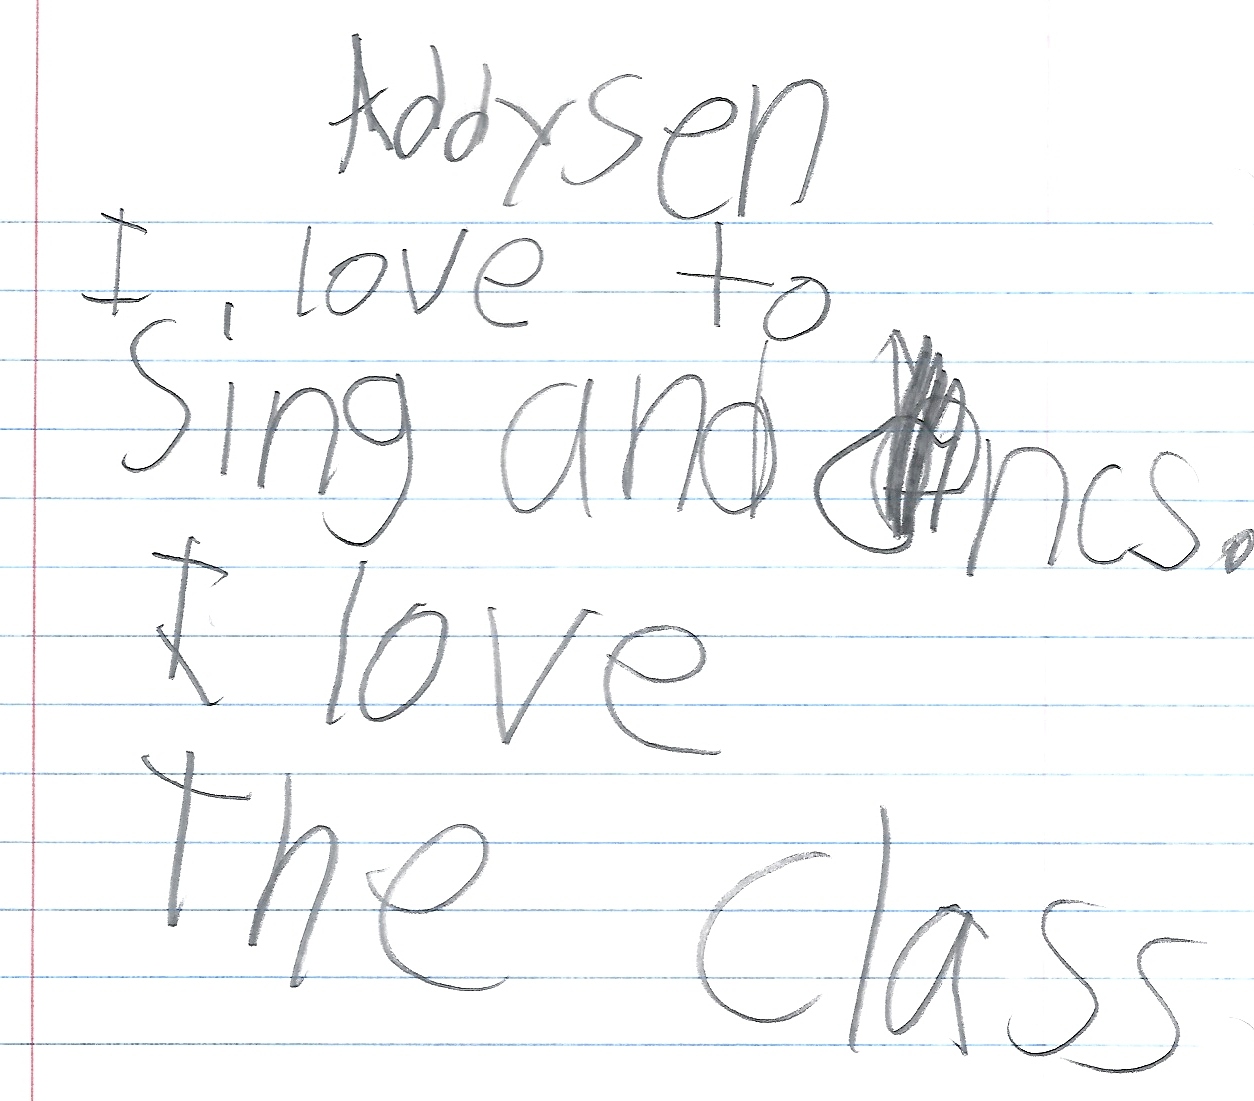 Addysen
I love to
Sing and
I love
The Class